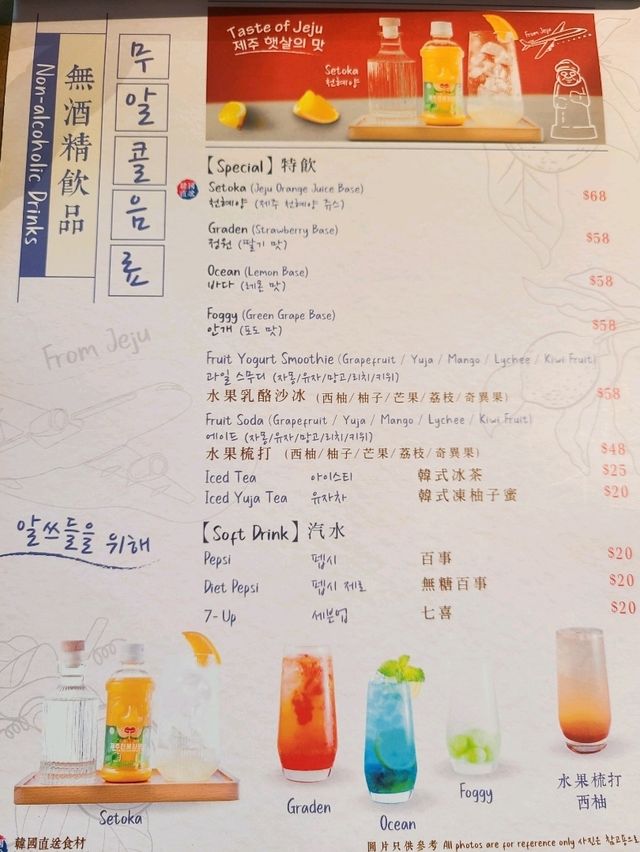 Non-alcoholic Drinks
無酒精飲品
무
알
콜
음
료
Taste of Jeju
제주 햇살의 맛
Setoka
천혜향
From Jeju
【Special】特飲
Setoka (Jeju Orange Juice Base) $68
천혜향 (제주 천혜향 쥬스)
Graden (Strawberry Base) $58
정원 (딸기 맛)
Ocean (Lemon Base) $58
바다 (레몬 맛)
Foggy (Green Grape Base) $58
안개 (포도 맛)
Fruit Yogurt Smoothie (Grapefruit / Yuja / Mango / Lychee / Kiwi Fruit)
과일 스무디 (자몽/유자/망고/리치/키위)
水果乳酪沙冰 (西柚/柚子/芒果/荔枝/奇異果) $58
Fruit Soda (Grapefruit / Yuja / Mango / Lychee / Kiwi Fruit)
에이드 (자몽/유자/망고/리치/키위)
水果梳打 (西柚/柚子/芒果/荔枝/奇異果) $48
Iced Tea 아이스티 韓式冰茶 $25
Iced Yuja Tea 유자차 韓式凍柚子蜜 $20
From Jeju
알쓰들을 위해
【Soft Drink】汽水
Pepsi 펩시 百事 $20
Diet Pepsi 펩시 제로 無糖百事 $20
7-Up 세븐업 七喜 $20
Setoka
Graden
Ocean
Foggy
水果梳打
西柚
韓國直送食材
圖片只供參考 All photos are for reference only 사진은 참고용으로